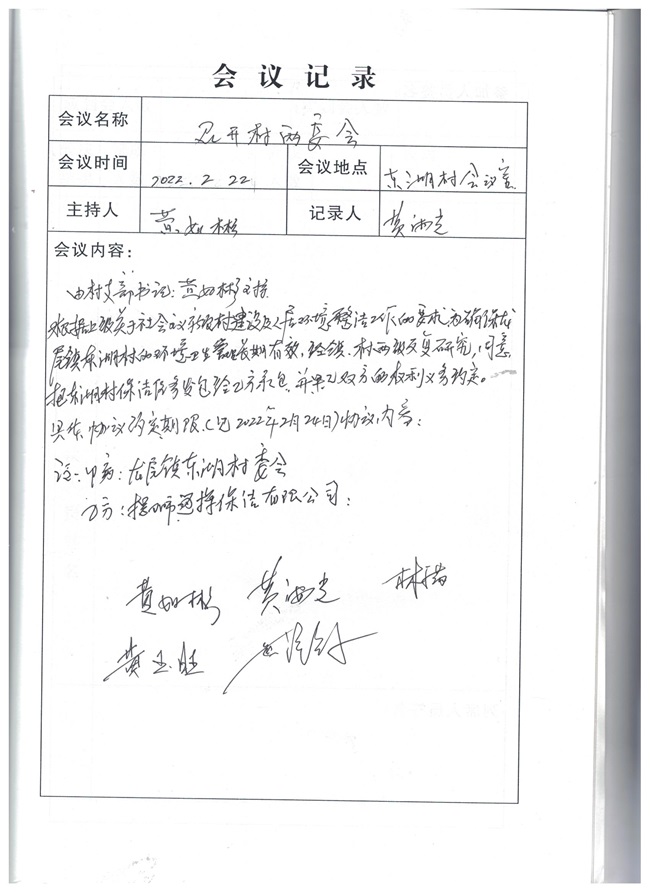 会议记录
会议名称 召开村两委会
会议时间 2022.2.22 会议地点 东湖村会议室
主持人 黄如彬 记录人 黄海龙
会议内容：
由村支部书记：黄如彬主持
根据上级关于社会主义新农村建设及人居环境整洁工作的要求，为确保龙
居镇东湖村的环境卫生 长期有效，经镇、村两级反复研究，同意
把东湖村保洁任务发包给乙方承包，并 甲乙双方的权利义务约定。
具体协议约定期限（见2022年2月24日）协议内容：
注：甲方：龙居镇东湖村委会
乙方： 保洁有限公司：
黄如彬 黄海龙 林
黄玉旺